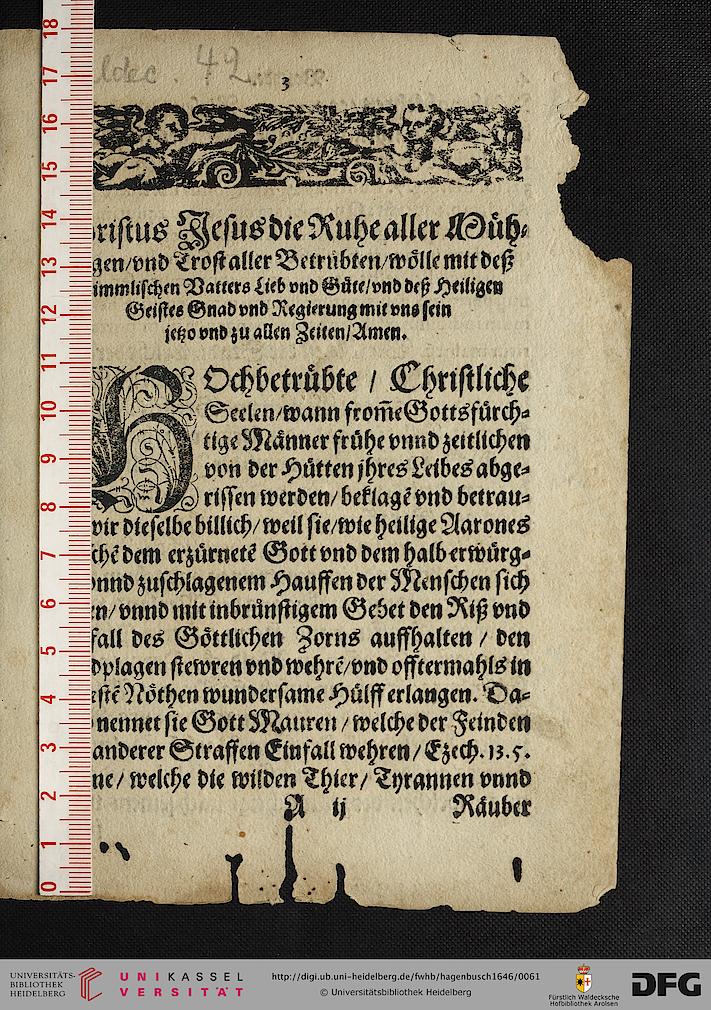 42
3
Jesus die Ruhe aller Müh-
vnd Trost aller Betrübten/wölle mit deß
Vatters Lieb vnd Güte/vnd deß Heiligen
Geistes Gnad vnd Regierung mit vns sein
jetzo vnd zu allen Zeiten/Amen.
HOchbetrübte / Christliche
Seelen/wann from̃e Gottsfürch-
tige Männer frühe vnnd zeitlichen
von der Hütten jhres Leibes abge-
rissen werden/ beklagẽ vnd betrau-
wir dieselbe billich/weil sie/wie heilige Aarones
dem erzürnetẽ Gott vnd dem halb erwürg-
vnnd zuschlagenem Hauffen der Menschen sich
vnnd mit inbrünstigem Gebet den Riß vnd
des Göttlichen Zorns auffhalten / den
stewren vnd wehrẽ/vnd offtermahls in
Nöthen wundersame Hülff erlangen. Da-
nennet sie Gott Mauren /welche der Feinden
anderer Straffen Einfall wehren/Ezech.13.5.
welche die wilden Thier/ Tyrannen vnnd
A ij Räuber
0 1 2 3 4 5 6 7 8 9 10 11 12 13 14 15 16 17 18
UNIVERSITÄTS-
BIBLIOTHEK
HEIDELBERG
UNIKASSEL
VERSITÄT
http://digi.ub.uni-heidelberg.de/fwhb/hagenbusch1646/0061
© Universitätsbibliothek Heidelberg
Fürstlich Waldecksche
Hofbibliothek Arolsen
DFG